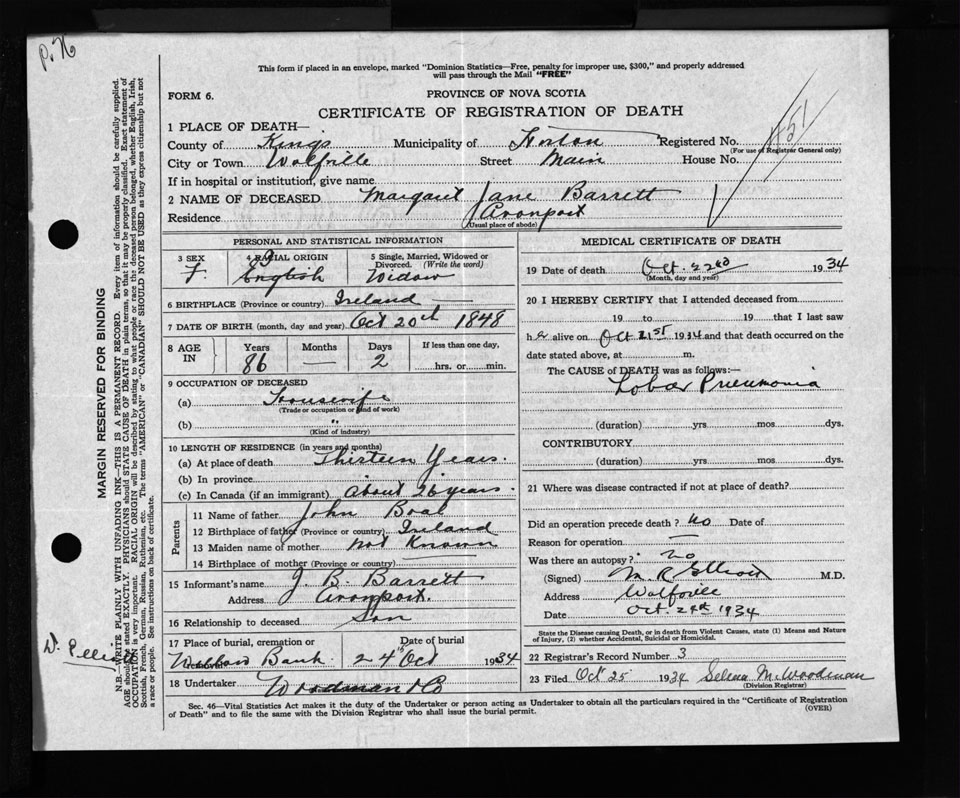 P. N
This form if placed in an envelope, marked "Dominion Statistics—Free, penalty for improper use, $300," and properly addressed
will pass through the Mail "FREE"
FORM 6.
PROVINCE OF NOVA SCOTIA
CERTIFICATE OF REGISTRATION OF DEATH
1 PLACE OF DEATH—
County of King's Municipality of Horton Registered No. 451
(For use of Registrar General only)
City or Town Wolfville Street Main House No.
If in hospital or institution, give name
2 NAME OF DECEASED Margaret Jane Barrett
Residence Avonport
(Usual place of abode)
PERSONAL AND STATISTICAL INFORMATION
3 SEX F. 4 RACIAL ORIGIN English 5 Single, Married, Widowed or Divorced. (Write the word) Widow
6 BIRTHPLACE (Province or country) Ireland —
7 DATE OF BIRTH (month, day and year) Oct 20th 1848
8 AGE IN Years 86 Months — Days 2 If less than one day, hrs. or min.
9 OCCUPATION OF DECEASED
(a) Housewife
(Trade or occupation or kind of work)
(b) "
(Kind of industry)
10 LENGTH OF RESIDENCE (in years and months)
(a) At place of death Thirteen Years.
(b) In province
(c) In Canada (if an immigrant) About 26 years.
Parents
11 Name of father John Boal
12 Birthplace of father (Province or country) Ireland
13 Maiden name of mother not Known
14 Birthplace of mother (Province or country) —
15 Informant's name J. B. Barrett
Address Avonport.
16 Relationship to deceased Son
17 Place of burial, cremation or Willow Bank Date of burial 24th Oct 1934
18 Undertaker Woodman & Co
MEDICAL CERTIFICATE OF DEATH
19 Date of death Oct. 22nd 1934
(Month, day and year)
20 I HEREBY CERTIFY that I attended deceased from
19 to 19 that I last saw
h er alive on Oct 21st 1934 and that death occurred on the
date stated above, at m.
The CAUSE of DEATH was as follows:—
Lobar Pneumonia
(duration) yrs mos dys.
CONTRIBUTORY
(duration) yrs. mos. dys.
21 Where was disease contracted if not at place of death?
Did an operation precede death? no Date of
Reason for operation —
Was there an autopsy? no
(Signed) M. R. Elliott M.D.
Address Wolfville
Date Oct. 24th 1934
State the Disease causing Death, or in death from Violent Causes, state (1) Means and Nature
of Injury, (2) whether Accidental, Suicidal or Homicidal.
22 Registrar's Record Number 3
23 Filed Oct 25 1934 Selena M. Woodman
(Division Registrar)
Sec. 46—Vital Statistics Act makes it the duty of the Undertaker or person acting as Undertaker to obtain all the particulars required in the "Certificate of Registration
of Death" and to file the same with the Division Registrar who shall issue the burial permit.
(OVER)
MARGIN RESERVED FOR BINDING
N.B.—WRITE PLAINLY WITH UNFADING INK—THIS IS A PERMANENT RECORD. Every item of information should be carefully supplied.
AGE should be stated EXACTLY. PHYSICIANS should STATE CAUSE OF DEATH in plain terms, so that it may be properly classified. Exact statement of
OCCUPATION is very important. RACIAL ORIGIN will be described by stating to what people or race the deceased person belonged, whether English, Irish,
Scottish, French, German, Russian, Ruthenian, etc. The terms "AMERICAN" or "CANADIAN" SHOULD NOT BE USED as they express citizenship but not
a race or people. See instructions on back of certificate.